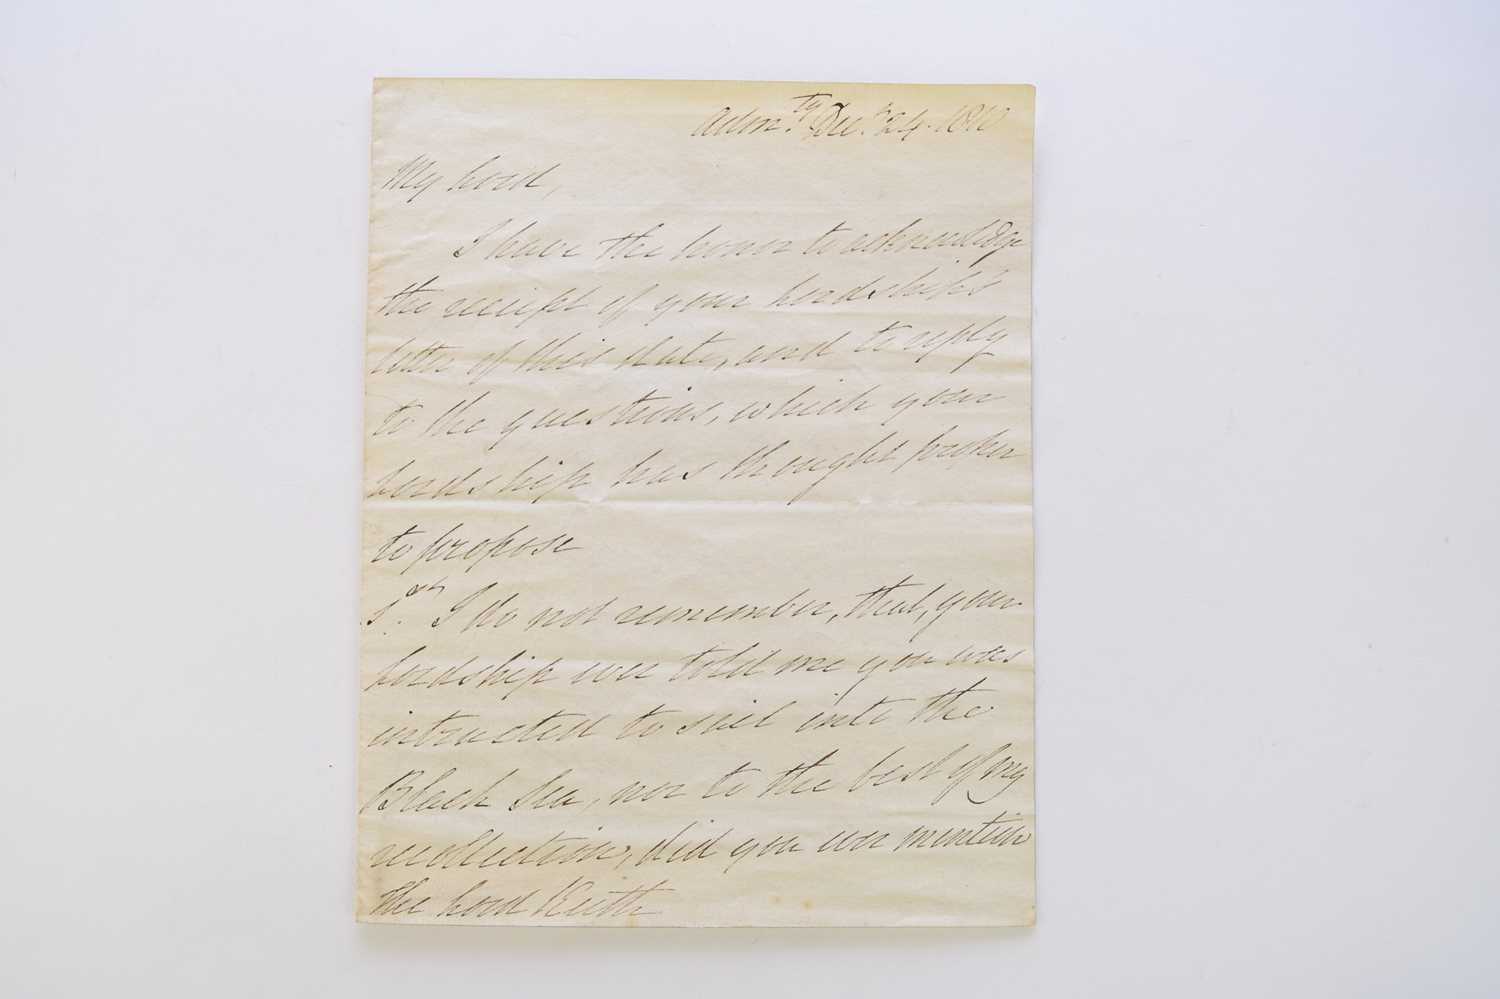 Adm.ty Dec.r 24. 1810
My Lord,
I have the honor to acknowledge
the receipt of your Lordship's
letter of this date, and to reply
to the questions, which your
Lordship has thought proper
to propose
1.st I do not remember, that, your
Lordship ever told me you was
intructed to sail into the
Black Sea, nor to the best of my
recollection, did you ever mention
The Lord Keith